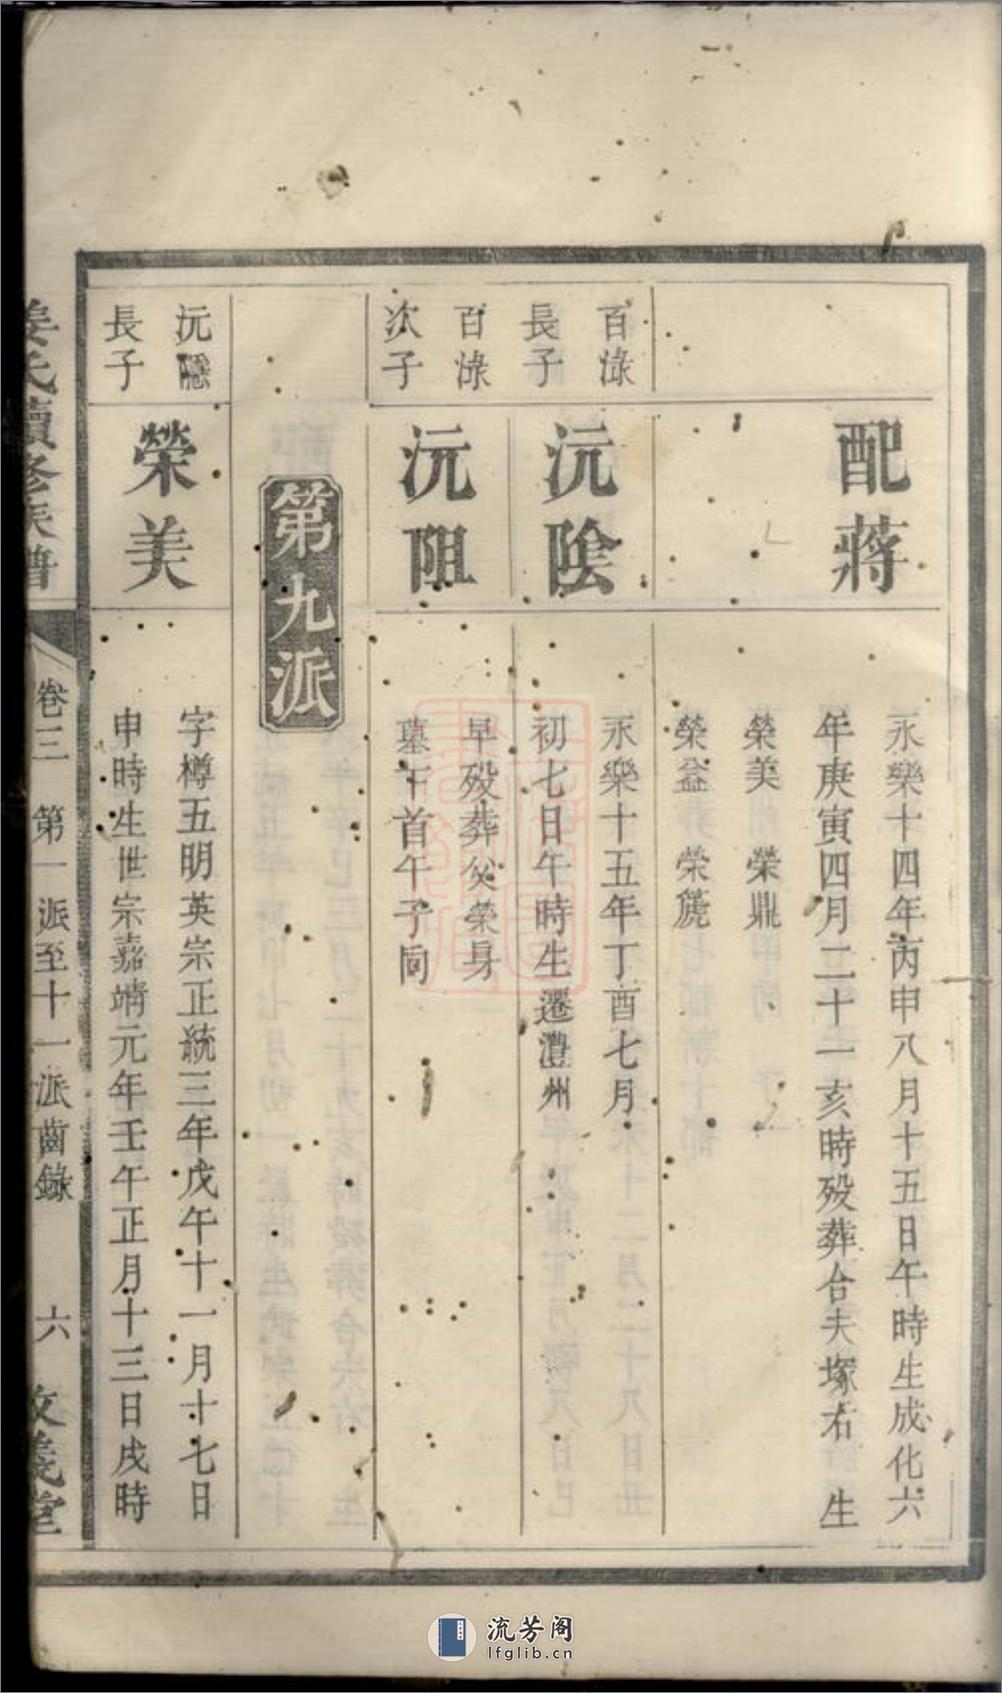 配蔣
永樂十四年丙申八月十五日午時生成化六
年庚寅四月二十一亥時殁葬合夫塚右 生
榮美 榮鼎
榮益 榮簏
百淥
長子
沅陰
永樂十五年丁酉七月
初七日午時生遷澧州
百淥
次子
沅阻
早殁葬父榮身
墓下首午子向
第九派
沅隱
長子
榮美
字樽五明英宗正統三年戊午十一月十七日
申時生世宗嘉靖元年壬午正月十三日戌時
姜氏續修族譜
卷三 第一派至十一派齒錄 六
流芳阁
lfglib.cn